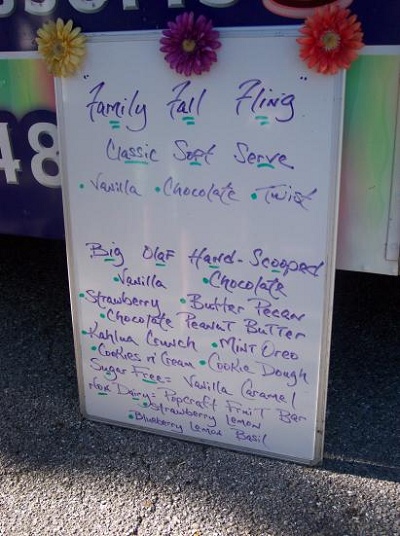 48
"Family Fall Fling"
Classic Soft Serve
• Vanilla • Chocolate • Twist
Big Olaf Hand-Scooped
• Vanilla • Chocolate
• Strawberry • Butter Pecan
• Chocolate Peanut Butter
• Kahlua Crunch • Mint Oreo
• Cookies n' Cream • Cookie Dough
Sugar Free = Vanilla Caramel
Non Dairy = Popcraft Fruit Bar
• Strawberry Lemon
• Blueberry Lemon Basil